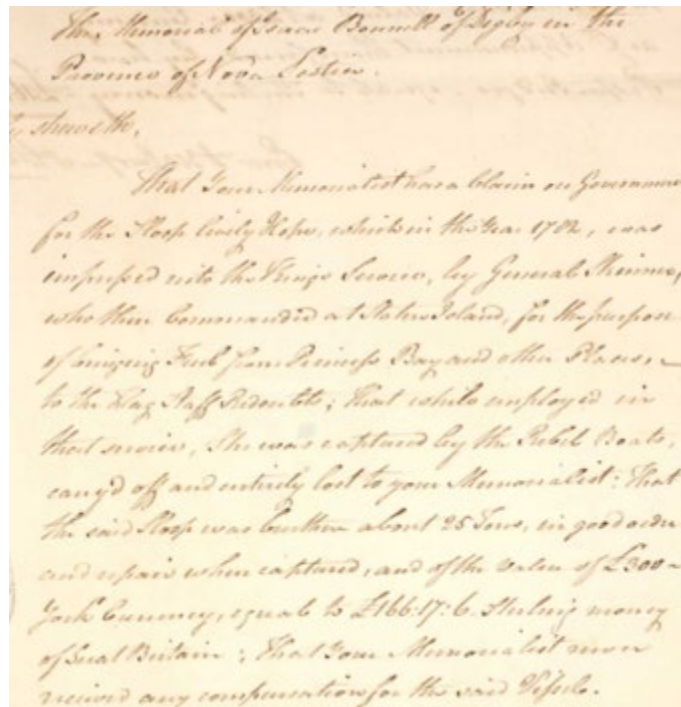 The Memorial of Isaac Bonnell of Digby in the
Province of Nova Scotia.
sheweth,
That Your Memorialist has a Claim on Government
for the Sloop lively Hope, which in the Year 1782, was
impressed into the Kings Service, by General Skinner,
who then Commanded at Staten Island, for the purpose
of bringing Fuel from Princess Bay and other Places,
to the Flag Staff Redoubts; That while employed in
that service, She was captured by the Rebel Boats,
carry'd off and entirely lost to your Memorialist: That
the said Sloop was burthen about 25 Tons, in good order
and repair when captured, and of the value of £300
York Currency, equal to £166:17:6. Sterling money
of Great Britain; That Your Memorialist never
received any compensation for the said Vessel.